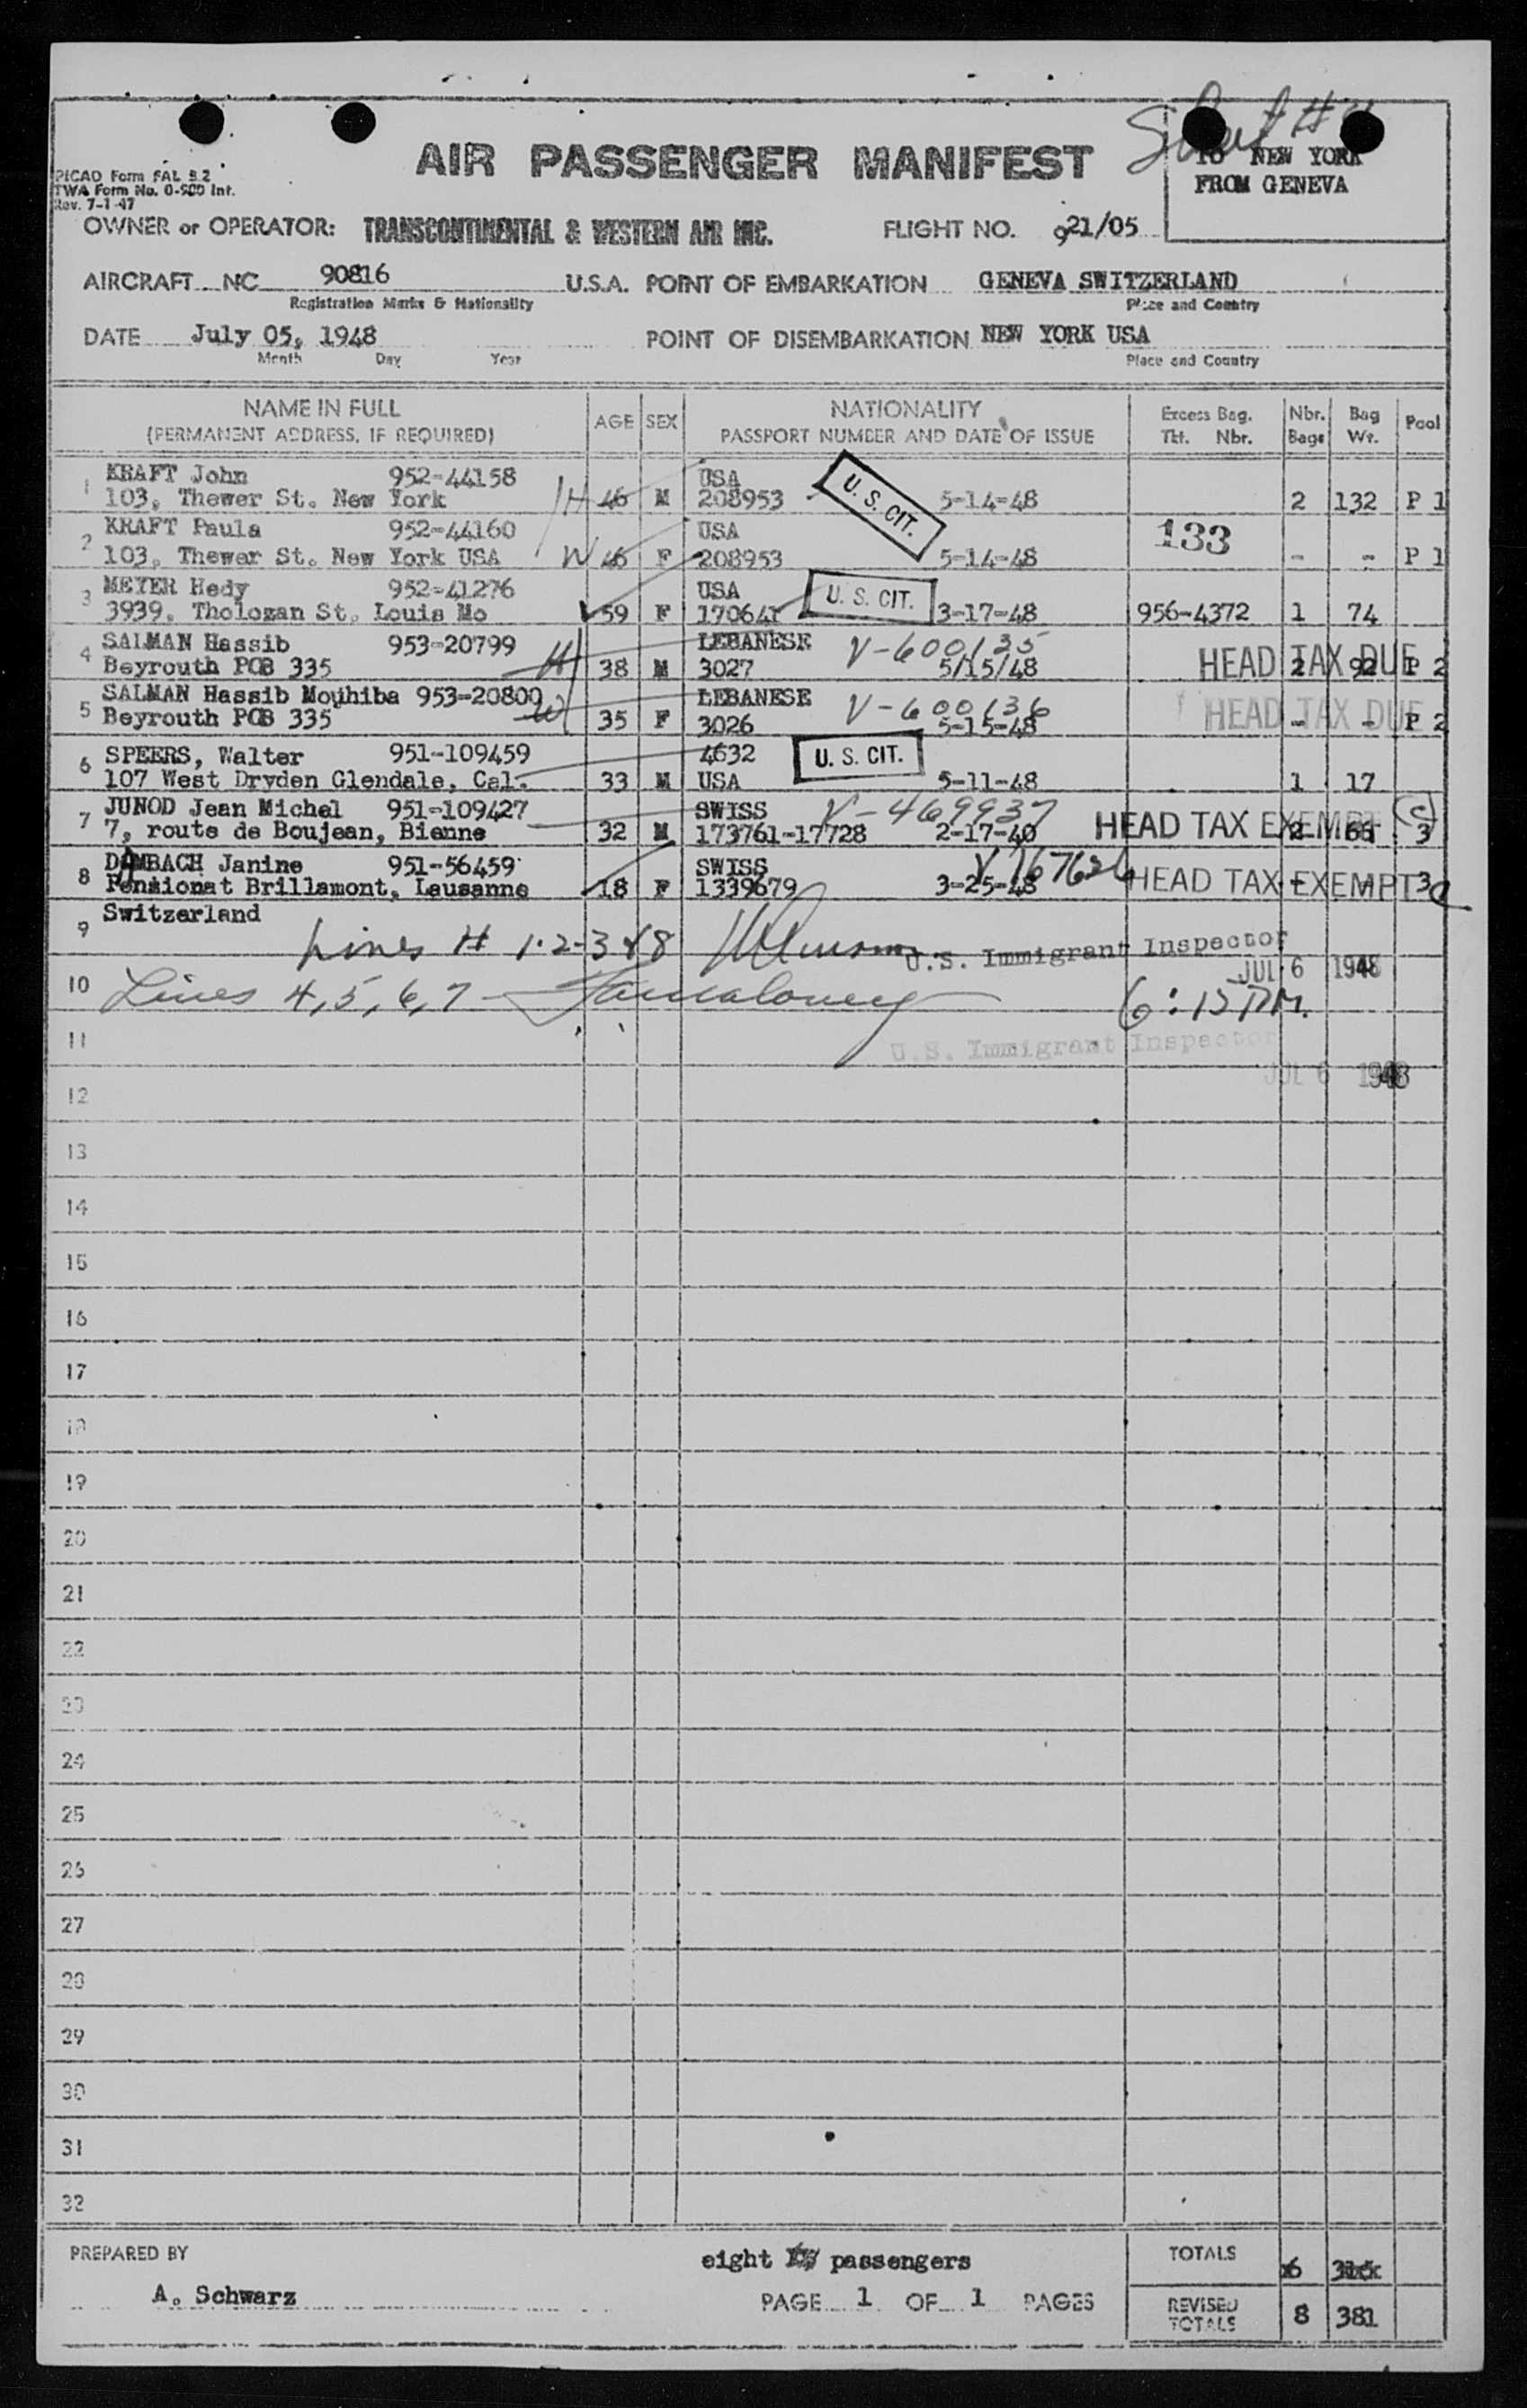 Sheet #
TO NEW YORK
FROM GENEVA
AIR PASSENGER MANIFEST
PICAO Form FAL 9.2
TWA Form No. 0-900 Int.
Rev. 7-1-47
OWNER or OPERATOR: TRANSCONTINENTAL & WESTERN AIR INC. FLIGHT NO. 921/05
AIRCRAFT NC 90816 U.S.A. POINT OF EMBARKATION GENEVA SWITZERLAND
Registration Marks & Nationality Place and Country
DATE July 05, 1948 POINT OF DISEMBARKATION NEW YORK USA
Month Day Year Place and Country
NAME IN FULL AGE SEX NATIONALITY Excess Bag. Nbr. Bag Pool
(PERMANENT ADDRESS, IF REQUIRED) PASSPORT NUMBER AND DATE OF ISSUE Tkt. Nbr. Bags Wt.
1 KRAFT John 952-44158 USA U. S. CIT.
103, Thewer St. New York H 46 M 208953 5-14-48 2 132 P 1
2 KRAFT Paula 952-44160 USA 133
103, Thewer St. New York USA W 46 F 208953 5-14-48 - - P 1
3 MEYER Hedy 952-41276 USA U. S. CIT.
3939, Tholozan St. Louis Mo 59 F 170641 3-17-48 956-4372 1 74
4 SALMAN Hassib 953-20799 LEBANESE V-600135
Beyrouth POB 335 H 38 M 3027 5/15/48 HEAD TAX DUE 2 92 P 2
5 SALMAN Hassib Mouhiba 953-20800 LEBANESE V-600136
Beyrouth POB 335 W 35 F 3026 5-15-48 HEAD TAX DUE - - P 2
6 SPEERS, Walter 951-109459 4632 U. S. CIT.
107 West Dryden Glendale, Cal. 33 M USA 5-11-48 1 17
7 JUNOD Jean Michel 951-109427 SWISS V-469937
7, route de Boujean, Bienne 32 M 173761-17728 2-17-40 HEAD TAX EXEMPT 2 3
8 DAMBACH Janine 951-56459 SWISS V 167626
Pensionat Brillamont, Lausanne 18 F 1339679 3-25-48 HEAD TAX EXEMPT 3
9 Switzerland
Lines # 1-2-3 & 8 U.S. Immigrant Inspector
JUL 6 1948
10 Lines 4, 5, 6, 7 6:15 PM.
11 U.S. Immigrant Inspector
JUL 6 1948
12
13
14
15
16
17
18
19
20
21
22
23
24
25
26
27
28
29
30
31
32
PREPARED BY eight passengers TOTALS 6
A. Schwarz PAGE 1 OF 1 PAGES REVISED TOTALS 8 381